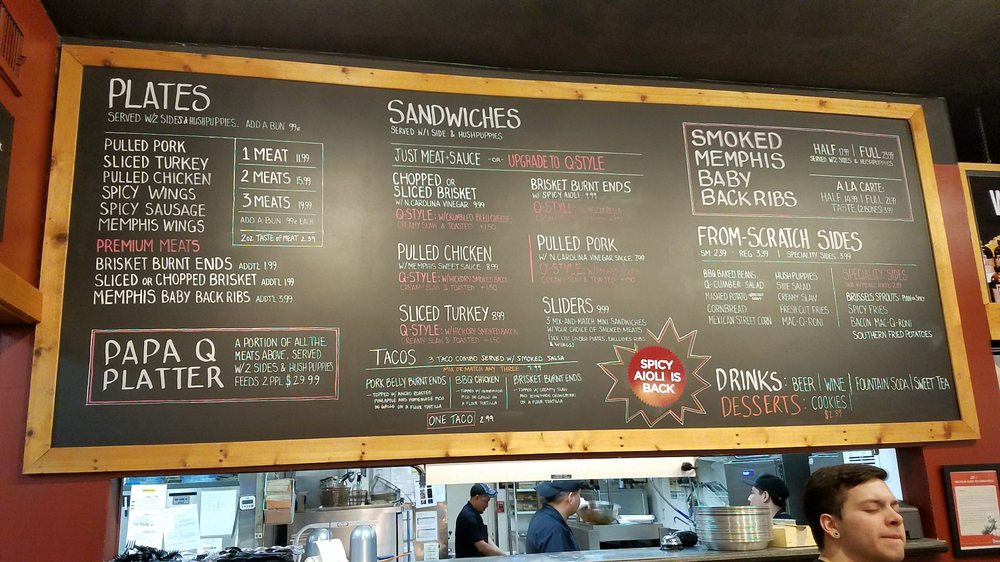 PLATES
SERVED W/2 SIDES & HUSHPUPPIES. ADD A BUN 99¢
PULLED PORK
SLICED TURKEY
PULLED CHICKEN
SPICY WINGS
SPICY SAUSAGE
MEMPHIS WINGS
1 MEAT 11.99
2 MEATS 15.99
3 MEATS 19.99
ADD A BUN 99¢ EACH
2oz TASTE OF MEAT 2.39
PREMIUM MEATS
BRISKET BURNT ENDS ADDTL 1.99
SLICED OR CHOPPED BRISKET ADDTL 1.99
MEMPHIS BABY BACK RIBS ADDTL 3.99
PAPA Q
PLATTER
A PORTION OF ALL THE
MEATS ABOVE, SERVED
W/2 SIDES & HUSH PUPPIES
FEEDS 2 PPL $29.99
SANDWICHES
SERVED W/1 SIDE & HUSHPUPPIES
JUST MEAT+SAUCE -OR- UPGRADE TO Q-STYLE
CHOPPED OR
SLICED BRISKET
W/ N.CAROLINA VINEGAR 9.99
Q-STYLE: W/CRUMBLED BLEU CHEESE,
CREAMY SLAW & TOASTED +1.50
PULLED CHICKEN
W/ MEMPHIS SWEET SAUCE 8.99
Q-STYLE: W/HICKORY SMOKED BACON
CREAMY SLAW & TOASTED +1.50
SLICED TURKEY 8.99
Q-STYLE: W/HICKORY SMOKED BACON
CREAMY SLAW & TOASTED +1.50
BRISKET BURNT ENDS
W/ SPICY AIOLI 9.99
Q-STYLE:
CREAMY SLAW & TOASTED +1.50
PULLED PORK
W/ N.CAROLINA VINEGAR SAUCE 7.99
Q-STYLE:
CREAMY SLAW & TOASTED +1.50
SLIDERS 9.99
3 MIX-AND-MATCH MINI SANDWICHES
W/ YOUR CHOICE OF SMOKED MEATS
(SEE LIST UNDER PLATES, EXCLUDES RIBS
& WINGS)
TACOS 3 TACO COMBO SERVED W/ SMOKED SALSA
MIX OR MATCH ANY THREE 7.99
PORK BELLY BURNT ENDS
-TOPPED W/ ANCHO ROASTED
PINEAPPLE AND HOMEMADE PICO
DE GALLO ON A FLOUR TORTILLA
BBQ CHICKEN
-TOPPED W/ HOMEMADE
PICO DE GALLO ON
A FLOUR TORTILLA
BRISKET BURNT ENDS
-TOPPED W/ CREAMY SLAW
AND HOMEMADE
ON A FLOUR TORTILLA
ONE TACO 2.99
SPICY
AIOLI IS
BACK
SMOKED
MEMPHIS
BABY
BACK RIBS
HALF 17.99 | FULL 23.99
SERVED W/2 SIDES & HUSHPUPPIES
A LA CARTE:
HALF 14.99 | FULL 21.99
TASTE (2 BONES) 3.99
FROM-SCRATCH SIDES
SM 2.39 · REG 3.39 | SPECIALTY SIDES 3.99
BBQ BAKED BEANS
Q-CUMBER SALAD
MASHED POTATO
CORNBREAD
MEXICAN STREET CORN
HUSH PUPPIES
SIDE SALAD
CREAMY SLAW
FRESH CUT FRIES
MAC-Q-RONI
SPECIALTY SIDES
BRUSSELS SPROUTS
SPICY FRIES
BACON MAC-Q-RONI
SOUTHERN FRIED POTATOES
DRINKS: BEER | WINE | FOUNTAIN SODA | SWEET TEA
DESSERTS: COOKIES
$2.39
W